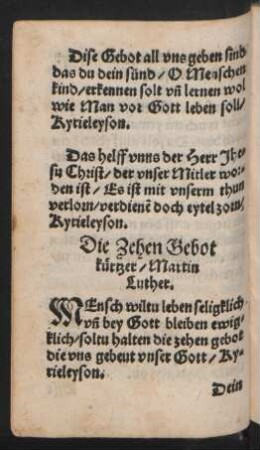 Dise Gebot all vns geben sind
das du dein sünd / O Menschen
kind / erkennen solt vñ lernen wol
wie Man vor Gott leben soll /
Kyrieleyson.
Das helff vnns der Herr Jhe-
su Christ / der vnser Mitler wor-
den ist / Es ist mit vnserm thun
verlorn / verdienē doch eytel zorn /
Kyrieleyson.
Die Zehen Gebot
kürtzer / Martin
Luther.
MEnsch wiltu leben seligklich
vñ bey Gott bleiben ewig-
klich / soltu halten die zehen gebot
die vns gebeut vnser Gott / Ky-
rieleyson.
Dein